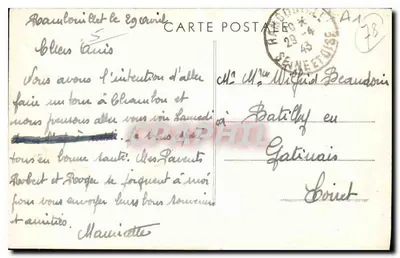 Rambouillet le 29 avril
CARTE POSTALE
RAMBOUILLET
29-4
45
SEINE ET OISE
A1
78
5
Chers Amis
Nous avons l'intention d'aller
faire un tour à Chambon et
nous pensons aller vous voir Samedi
tous en bonne santé. Mes Parents
Robert et Roger se joignent à moi
pour vous envoyer leurs bons souvenirs
et amitiés.
Mauricette
Mr Mme Wilfrid Beaudoin
à
Batilly en
Gatinais
Loiret